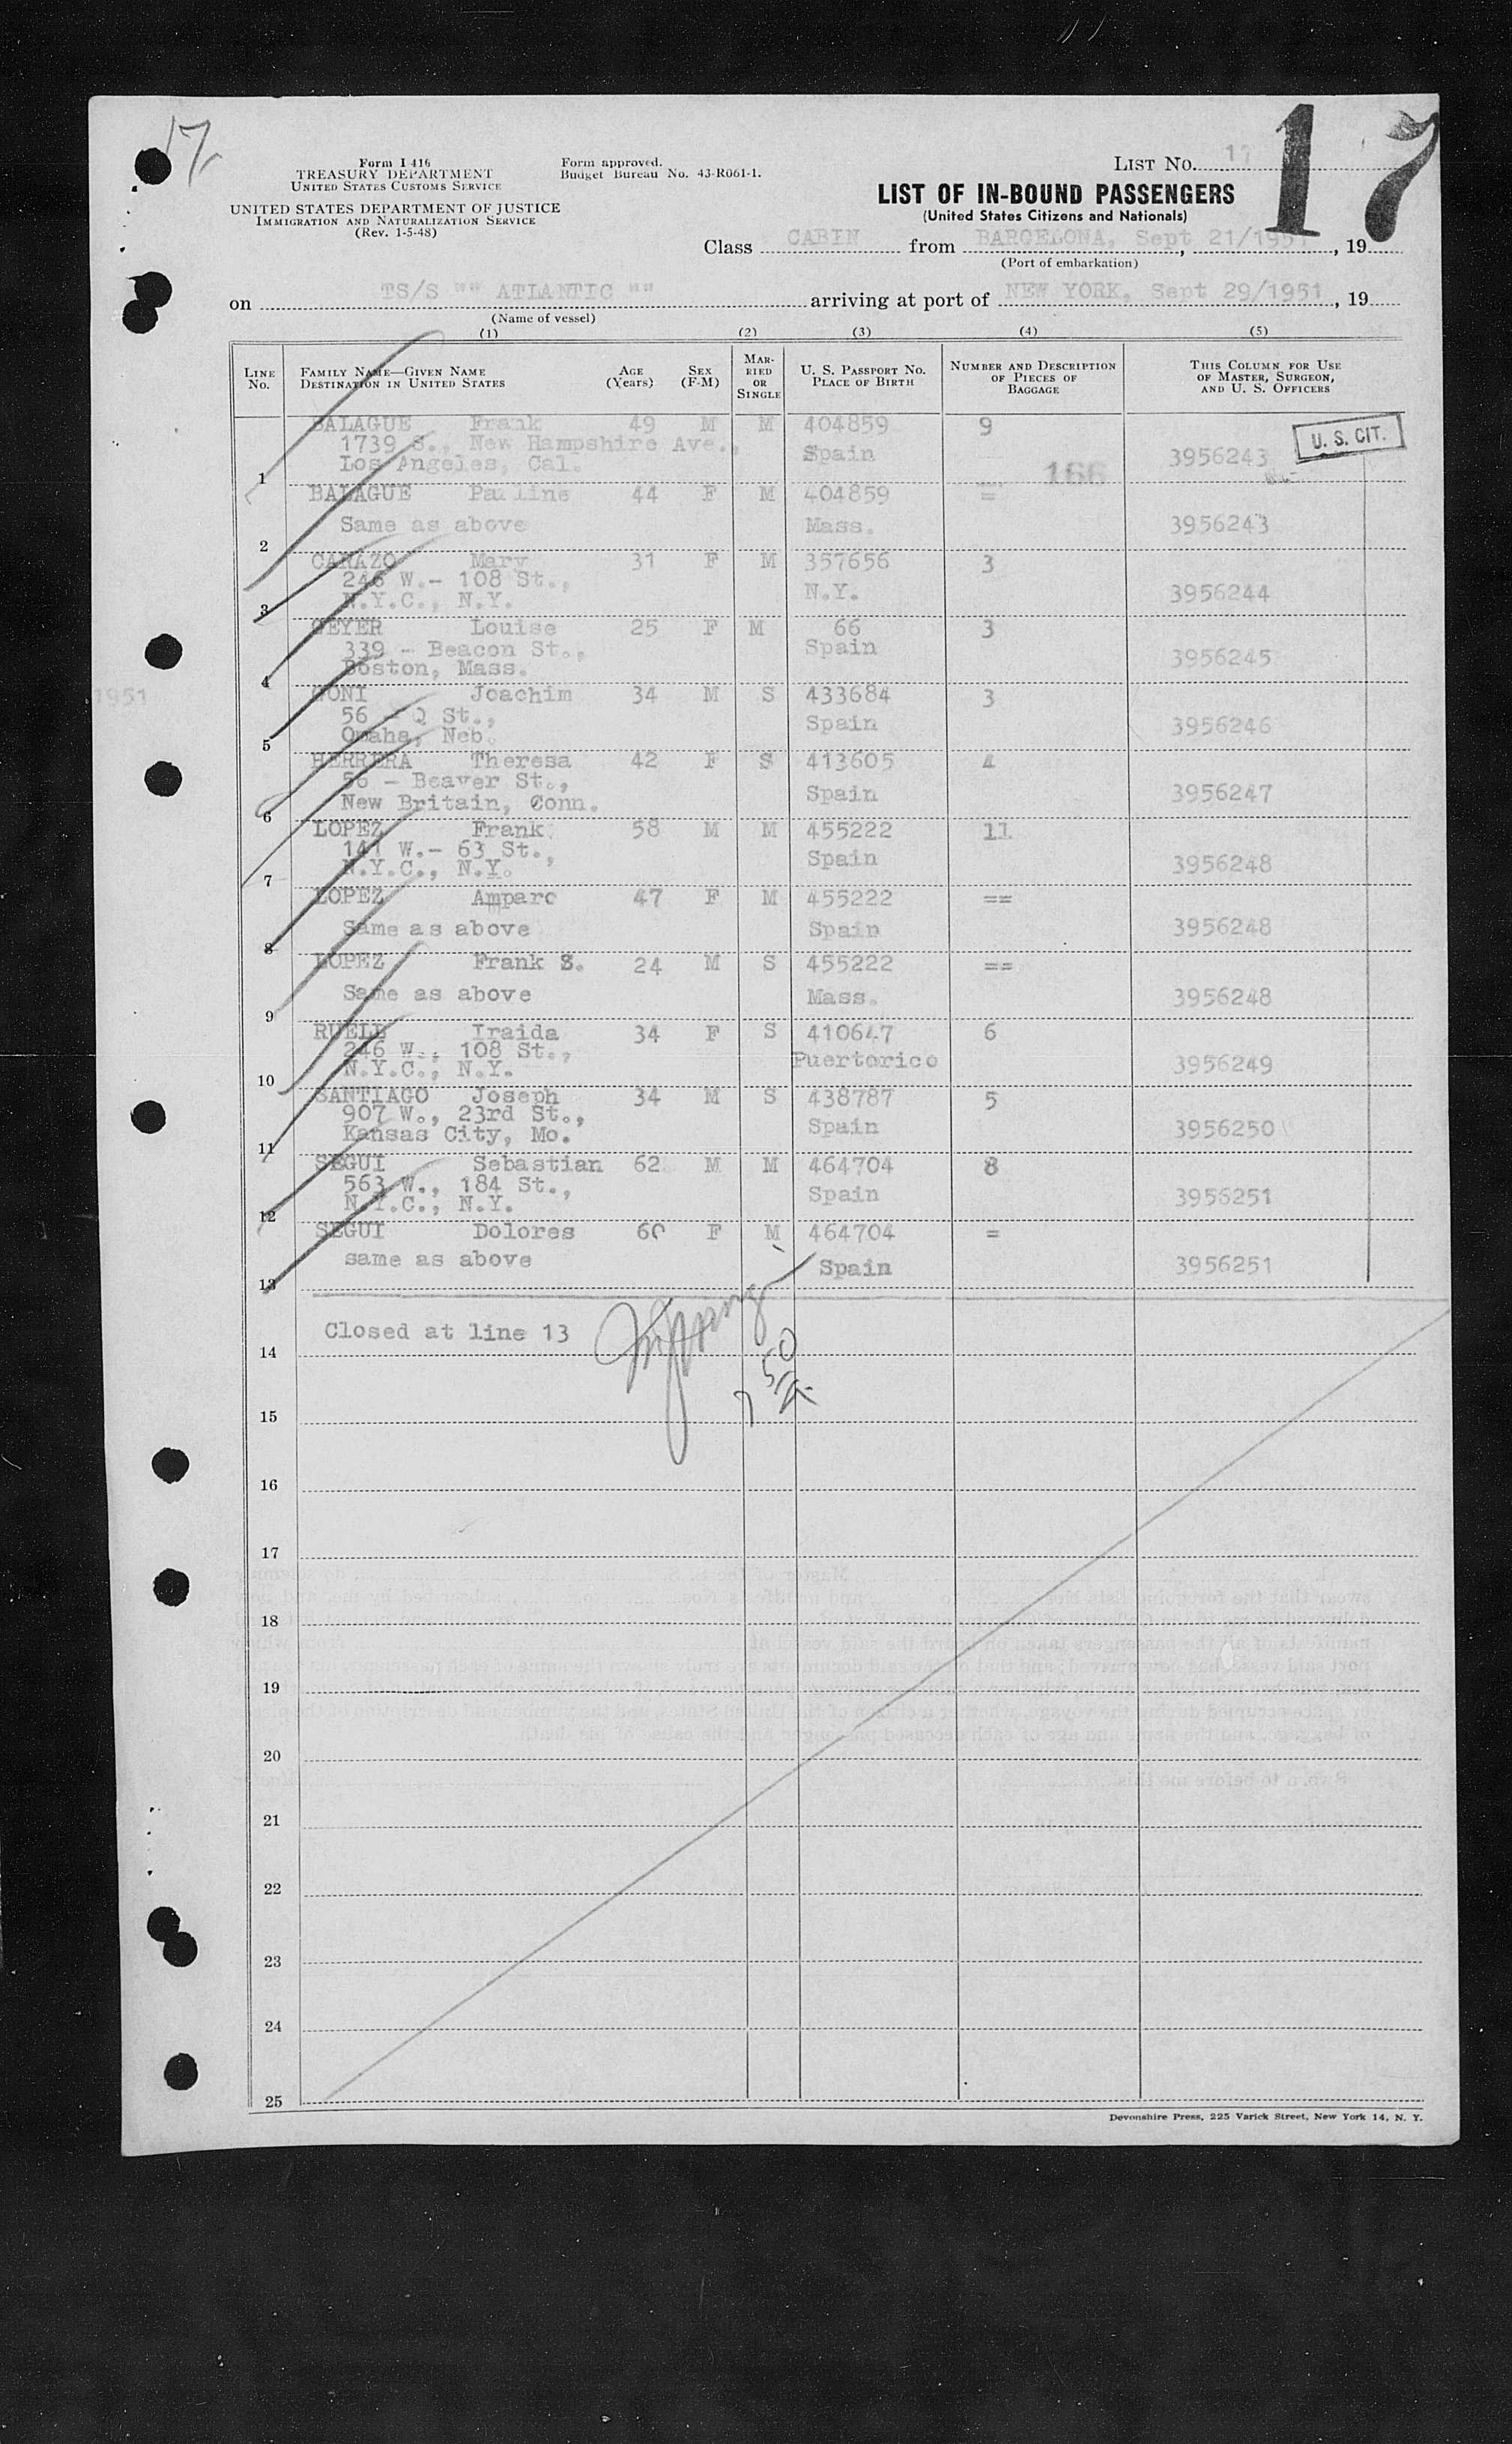 17
Form I 416
TREASURY DEPARTMENT
UNITED STATES CUSTOMS SERVICE
UNITED STATES DEPARTMENT OF JUSTICE
IMMIGRATION AND NATURALIZATION SERVICE
(Rev. 1-5-48)
Form approved.
Budget Bureau No. 43-R061-1.
LIST NO. 17
17
LIST OF IN-BOUND PASSENGERS
(United States Citizens and Nationals)
Class CABIN from BARCELONA, Sept 21/1951, 19
(Port of embarkation)
on TS/S "" ATLANTIC "" arriving at port of NEW YORK, Sept 29/1951, 19
(Name of vessel)
(1) (2) (3) (4) (5)
LINE No. FAMILY NAME—GIVEN NAME DESTINATION IN UNITED STATES AGE (Years) SEX (F-M) MARRIED OR SINGLE U. S. PASSPORT NO. PLACE OF BIRTH NUMBER AND DESCRIPTION OF PIECES OF BAGGAGE THIS COLUMN FOR USE OF MASTER, SURGEON, AND U. S. OFFICERS
BALAGUE Frank 49 M M 404859 9
U. S. CIT.
1739 S., New Hampshire Ave., Spain 3956243
Los Angeles, Cal.
1
166
BALAGUE Pauline 44 F M 404859 =
Same as above Mass. 3956243
2
CARAZO Mary 31 F M 357656 3
246 W.- 108 St., N.Y. 3956244
N.Y.C., N.Y.
3
GEYER Louise 25 F M 66 3
339 - Beacon St., Spain 3956245
Boston, Mass.
4
1951
GONI Joachim 34 M S 433684 3
56 - Q St., Spain 3956246
Omaha, Neb.
5
HERRERA Theresa 42 F S 413605 4
56 - Beaver St., Spain 3956247
New Britain, Conn.
6
LOPEZ Frank 58 M M 455222 11
141 W.- 63 St., Spain 3956248
N.Y.C., N.Y.
7
LOPEZ Amparo 47 F M 455222 ==
Same as above Spain 3956248
8
LOPEZ Frank S. 24 M S 455222 ==
Same as above Mass. 3956248
9
RUELE Iraida 34 F S 410647 6
246 W., 108 St., Puertorico 3956249
N.Y.C., N.Y.
10
SANTIAGO Joseph 34 M S 438787 5
907 W., 23rd St., Spain 3956250
Kansas City, Mo.
11
SEGUI Sebastian 62 M M 464704 8
563 W., 184 St., Spain 3956251
N.Y.C., N.Y.
12
SEGUI Dolores 60 F M 464704 =
same as above Spain 3956251
13
Closed at line 13
14
15
16
17
18
19
20
21
22
23
24
25
Devonshire Press, 225 Varick Street, New York 14, N. Y.